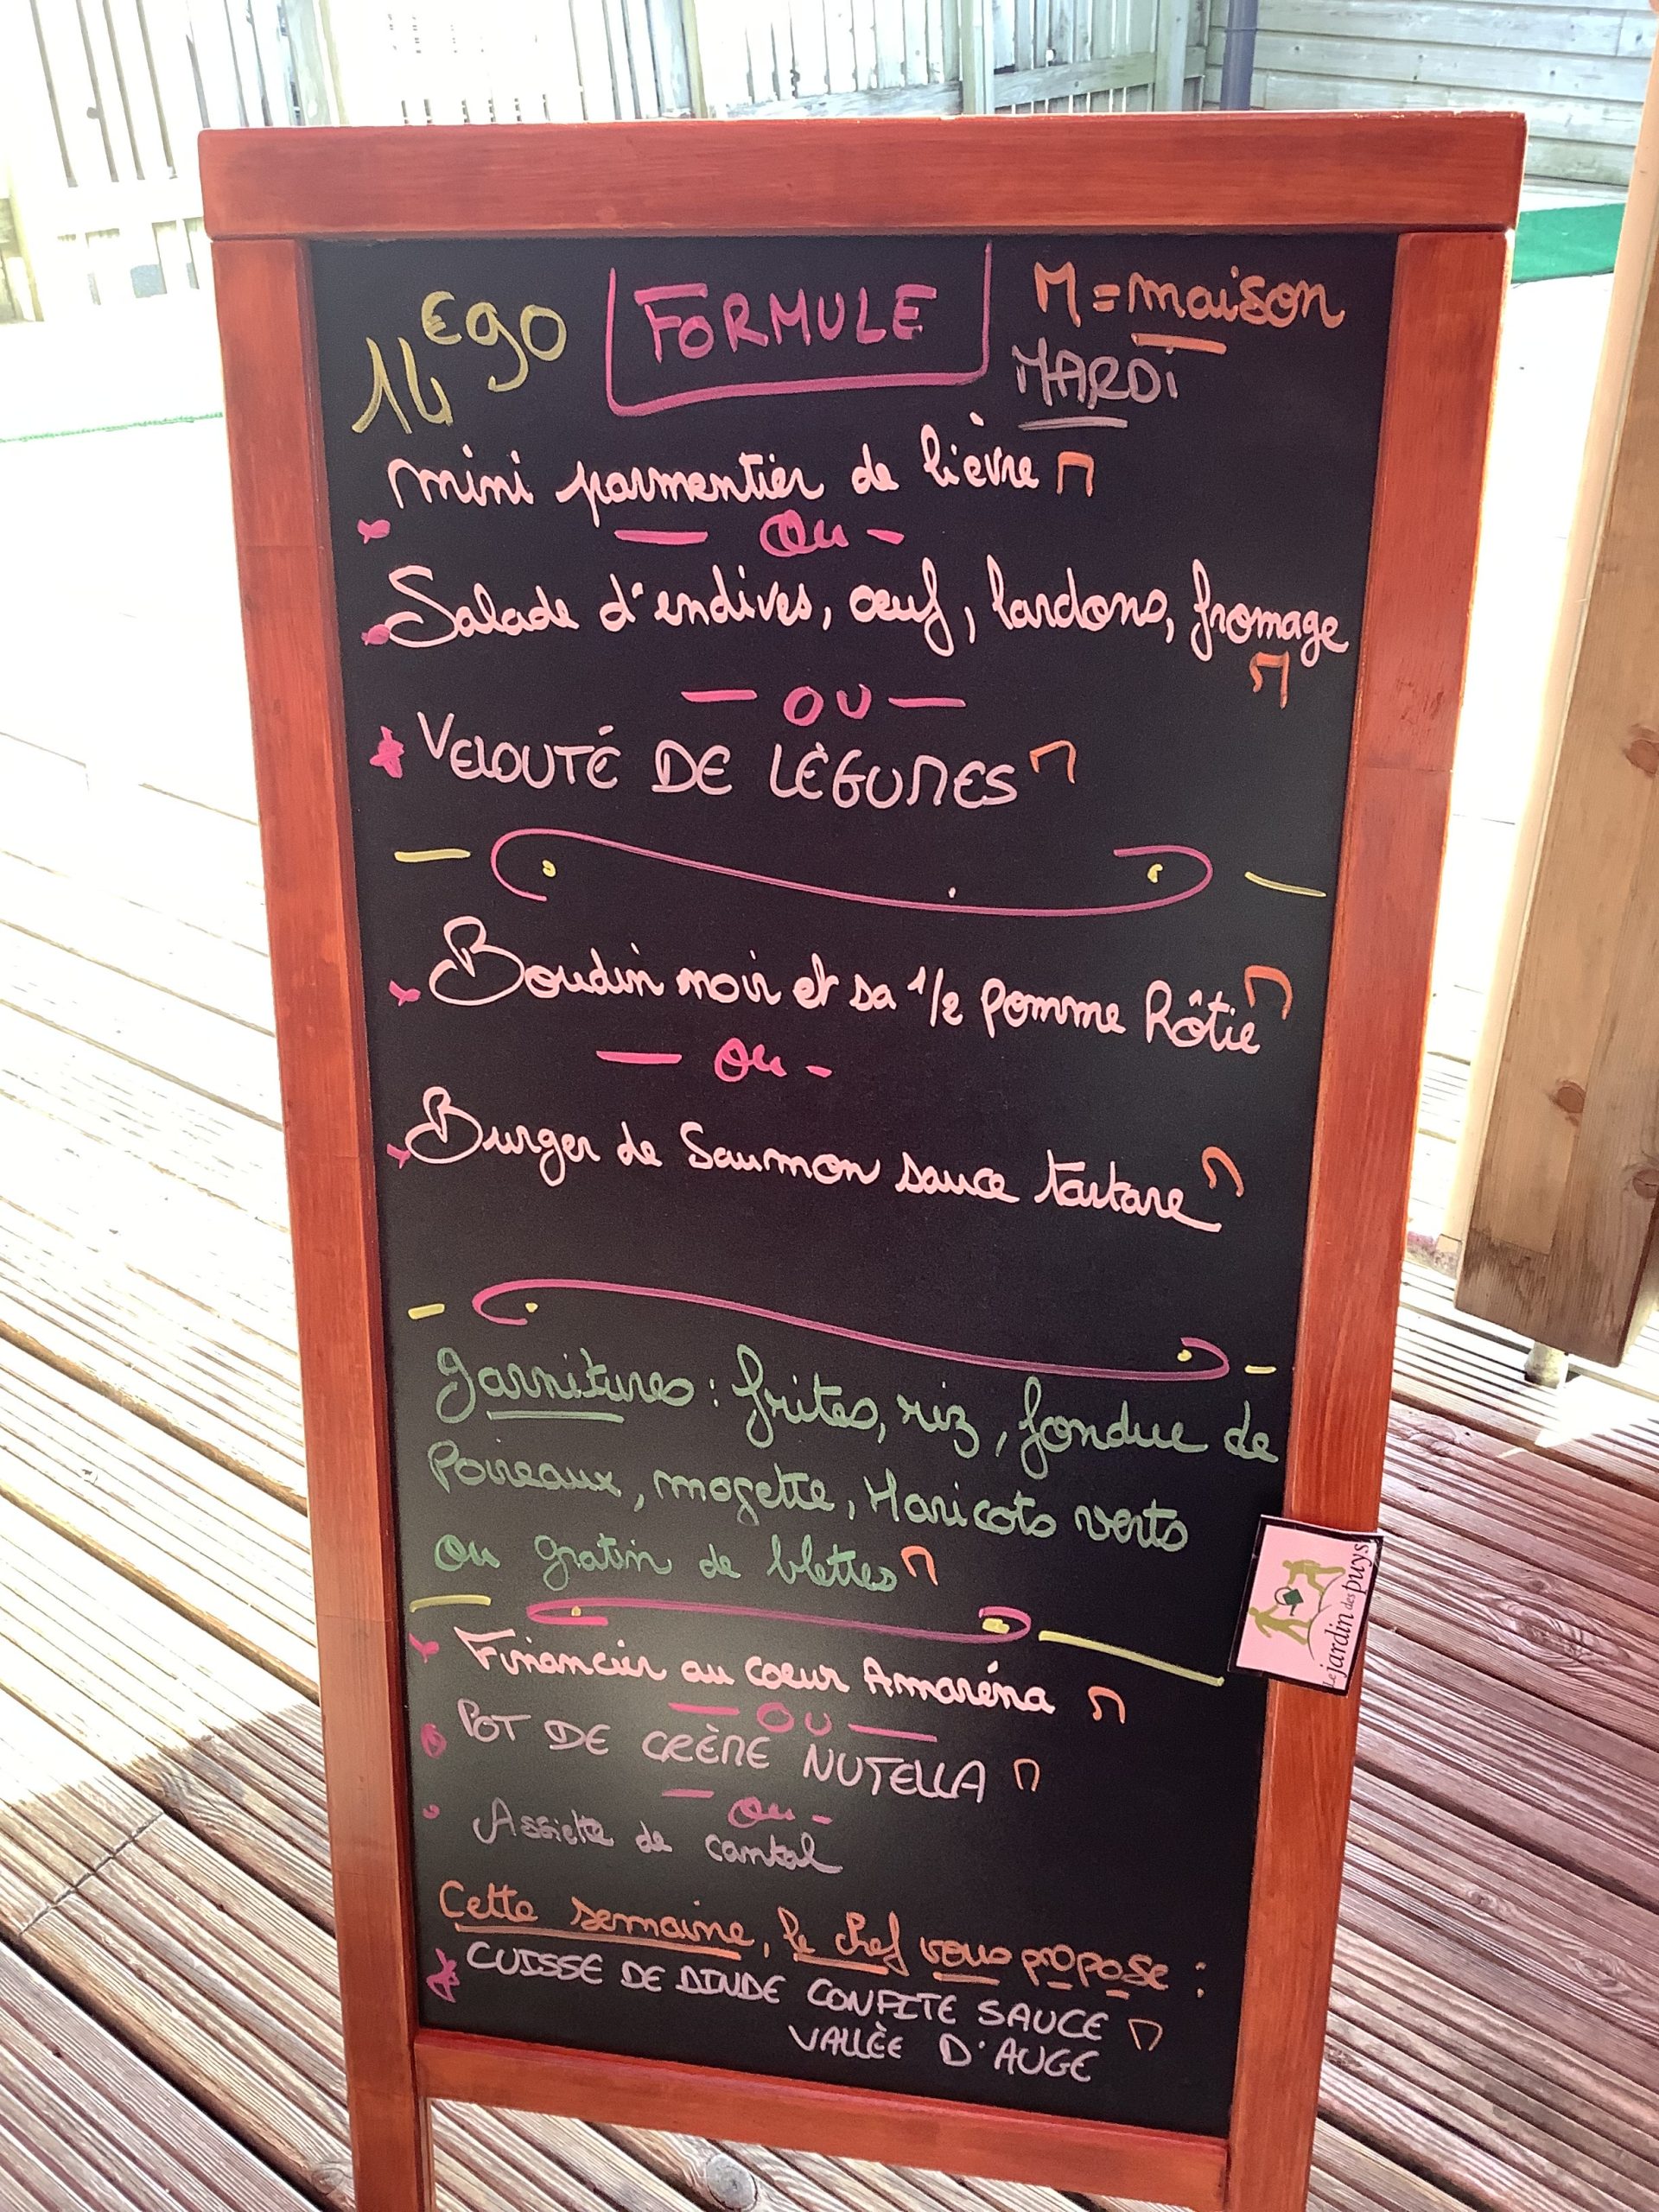 14€90 FORMULE M=maison
MARDI
mini parmentier de lièvre M
- Ou -
Salade d'endives, œuf, lardons, fromage
M
- OU -
VELOUTÉ DE LÉGUMES M
Boudin noir et sa 1/2 pomme Rôtie M
- Ou -
Burger de Saumon sauce tartare M
Garnitures : frites, riz, fondue de
Poireaux, mogette, Haricots verts
ou gratin de blettes M
Financier au coeur Amaréna M
- OU -
POT DE CRÈME NUTELLA M
- Ou -
Assiette de cantal
Cette semaine, le chef vous propose :
CUISSE DE DINDE CONFITE SAUCE M
VALLÈE D'AUGE
Le jardin des puys